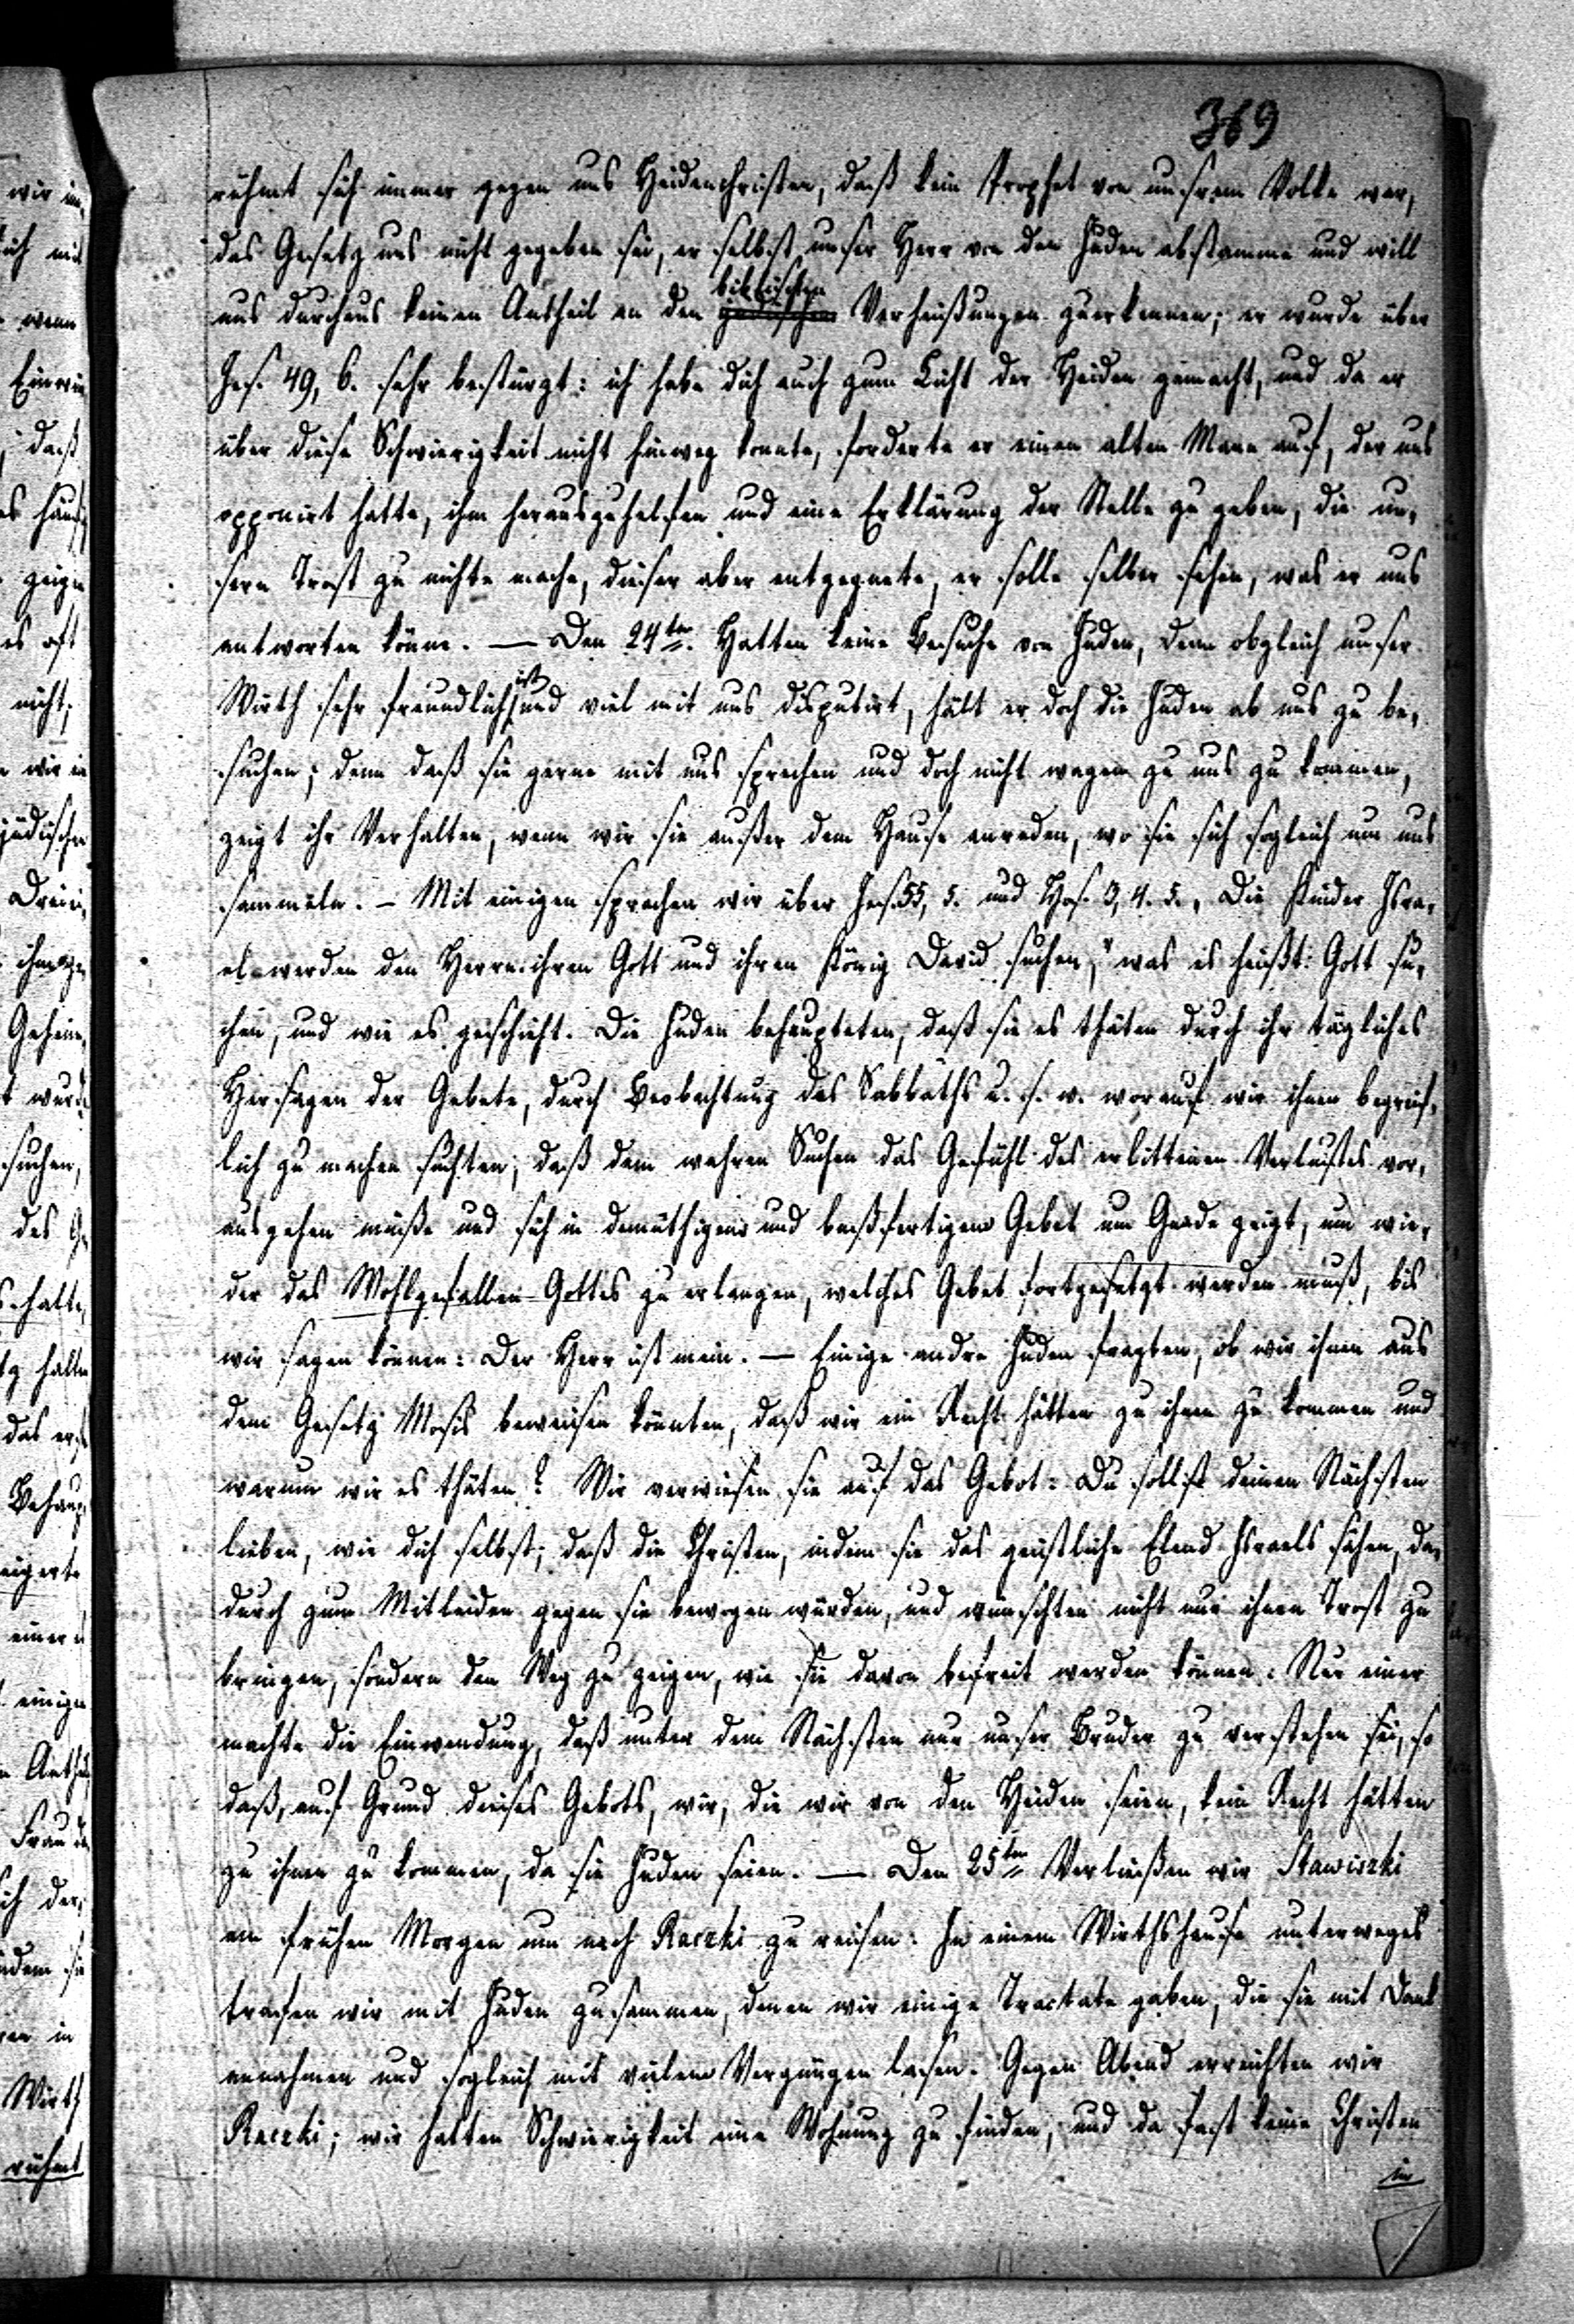 369
rühmt sich immer gegen uns Heidenchristen, daß kein Prophet von unsrem Volke war,
das Gesetz uns nicht gegeben sei, er selbst unser Herr von den Juden abstamme und will
biblischen
uns durchaus keinen Antheil an den Verheißungen zuerkennen; er wurde über
Jes. 49, 6. sehr bestürzt: ich habe dich auch zum Licht der Heiden gemacht, und da er
über diese Schwierigkeit nicht hinweg konnte, forderte er einen alten Mann auf, der uns
opponirt hatte, ihm herauszuhelfen und eine Erklärung der Stelle zu geben, die un-
sern Trost zu nichte mache, dieser aber entgegnete, er solle selber sehen, was er uns
antworten könne. — Den 24ten. Hatten keine Besuche von Juden, denn obgleich unser
ist
Wirth sehr freundlich und viel mit uns disputirt, hält er doch die Juden ab uns zu be-
suchen; denn daß sie gerne mit uns sprechen und doch nicht wagen zu uns zu kommen,
zeigt ihr Verhalten, wenn wir sie außer dem Hause anreden, wo sie sich sogleich um uns
sammeln. – Mit einigen sprachen wir über Jes. 55, 5. und Hos. 3, 4. 5. „Die Kinder Isra-
el werden den Herrn ihren Gott und ihren König David suchen," was es heißt: Gott su-
chen, und wie es geschieht. Die Juden behaupteten, daß sie es thäten durch ihr tägliches
Hersagen der Gebete, durch Beobachtung des Sabbaths u. s. w. worauf wir ihnen begreif-
lich zu machen suchten, daß dem wahren Suchen das Gefühl des erlittenen Verlustes vor-
ausgehen müße und sich in demüthigem und bußfertigem Gebet um Gnade zeigt, um wie-
der das Wohlgefallen Gottes zu erlangen, welches Gebet fortgesetzt werden muß, bis
wir sagen können: Der Herr ist mein. — Einige andre Juden fragten, ob wir ihnen aus
dem Gesetz Mosis beweisen könnten, daß wir ein Recht hätten zu ihnen zu kommen und
warum wir es thäten? Wir verwiesen sie auf das Gebot: Du sollst deinen Nächsten
lieben, wie dich selbst; daß die Christen, indem sie das geistliche Elend Israels sähen, da-
durch zum Mitleiden gegen sie bewogen würden, und wünschten nicht nur ihnen Trost zu
bringen, sondern den Weg zu zeigen, wie sie davon befreit werden können. Nur einer
machte die Einwendung, daß unter dem Nächsten nur unser Bruder zu verstehen sei, so
daß, auf Grund dieses Gebots, wir, die wir von den Heiden seien, kein Recht hätten
zu ihnen zu kommen, da sie Juden seien. — Den 25ten Verließen wir Stawiszki
am frühen Morgen um nach Raczki zu reisen. In einem Wirthshause unterweges
trafen wir mit Juden zusammen, denen wir einige Tractate gaben, die sie mit Dank
annahmen und sogleich mit vielem Vergnügen lasen. Gegen Abend erreichten wir
Raczki; wir hatten Schwierigkeit eine Wohnung zu finden, und da fast keine Christen
in